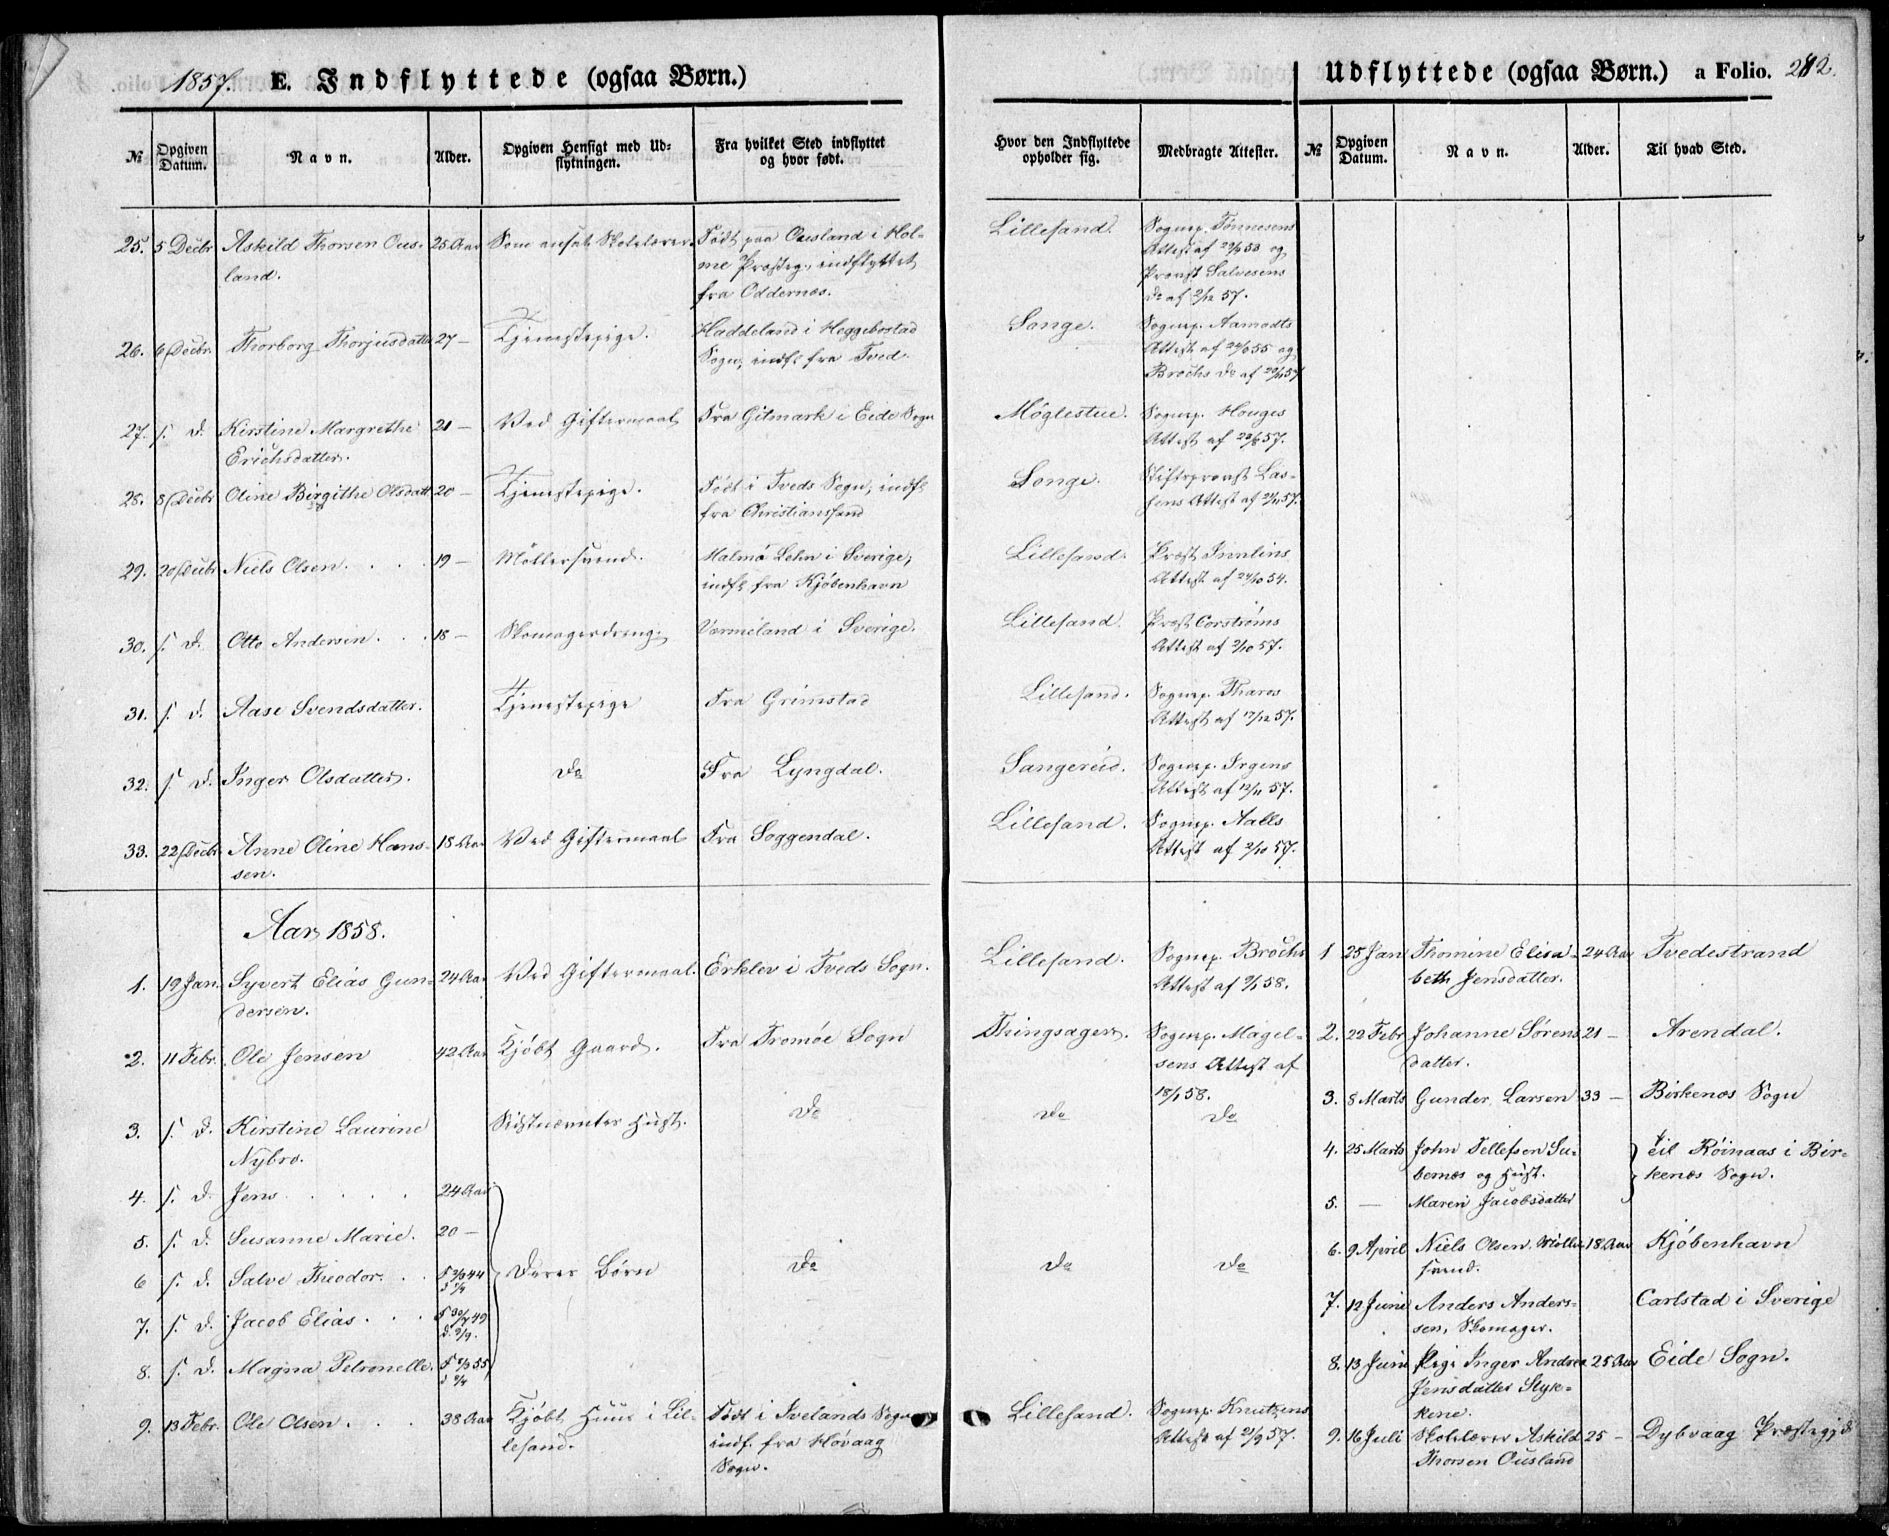 1857. E. Indflyttede (ogsaa Børn.)
№ Opgiven Datum. Navn. Alder. Opgiven Hensigt med Udflytningen. Fra hvilket Sted indflyttet og hvor født.
25. 5 Decbr Askild Thorsen Ous- 25 Aar Som ansat Skolelærer Født paa Ousland i Hol-
land. me Præsteg., indflyttet
fra Oddernæs.
26. 6 Decbr. Thorborg Thorjusdatter 27 — Tjenestepige. Haddeland i Heggebostad
Sogn, indfl fra Tved.
27. s. d. Kirstine Margrethe 21 — Ved Giftermaal Fra Gitmark i Eide Sogn
Erichsdatter.
28. 8 Decbr Oline Birgithe Olsdatt 20 — Tjenestepige. Født i Tveds Sogn, indfl
fra Christianssand
29. 20 Decbr Niels Olsen . . . . 19 — Møllersvend. Malmø Lehn i Sverige,
indfl fra Kjøbenhavn
30. s. d. Otto Andersen . . . 18 — Skomagerdreng. Vermeland i Sverige.
31. s. d. Aase Svendsdatter. Tjenestepige Fra Grimstad
32. s. d. Inger Olsdatter. Do Fra Lyngdal.
33. 22 Decbr Anne Oline Hans- 18 Aar Ved Giftermaal Fra Soggendal.
sen.
Aar 1858.
1. 19 Jan. Syvert Elias Gun- 24 Aar Ved Giftermaal. Erklev i Tveds Sogn.
dersen.
2. 11 Febr. Ole Jensen 42 Aar Kjøbt Gaard. Fra Tromøe Sogn
3. s. d. Kirstine Laurine Sidstnævntes Hust. Do
Nybro.
4. s. d. Jens . . . . . 24 Aar
5. s. d. Susanne Marie. 20 —
6 s. d. Salve Theodor. . . Deres Børn Do
7. s. d. Jacob Elias . . .
8. s. d. Magna Petronelle.
9. 13 Febr. Ole Olsen . . . 38 Aar Kjøbt Huus i Lil- Født i Ivelands Sogn
lesand. indf. fra Høvaag
Sogn.
Udflyttede (ogsaa Børn.) a Folio. 212.
Hvor den Indflyttede opholder sig. Medbragte Attester. № Opgiven Datum. Navn. Alder. Til hvad Sted.
Lillesand. Sognep. Tønnesens
Attest af 29/9 53 og
Provst Salvesens
Do af 2/12 57.
Songe. Sognep. Aamodts
Attest af 24/9 55 og
Brochs Do af 29/11 57
Møglestue. Sognep. Houges
Attest af 22/8 57.
Songe. Stiftsprovst Las-
sens Attest af 21/11 57.
Lillesand. Præst
Attest af 24/10 54.
Lillesand. Præst Corstrøms
Attest af 2/10 57.
Lillesand. Sognep. Tharos
Attest af 17/12 57.
Sangereid. Sognep. Irgens
Attest af 12/11 57.
Lillesand. Sognep. Aalls
Attest af 2/10 57.
Lillesand. Sognep. Brochs 1 25 Jan Thomine Elisa- 24 Aar Tvedestrand
Attest af 9/1 58. beth Jensdatter.
Thingsager. Sognep. Magel- 2. 22 Febr Johanne Sørens 21 — Arendal.
sens Attest af datter.
18/1 58. 3. 8 Marts Gunder Larsen 33 — Birkenæs Sogn
Do Do
4. 25 Marts John Tellefsen Su- til Røinaas i Bir-
benæs og Hust. kenæs Sogn.
5. — Maren Jacobsdatter
6. 9 April Niels Olsen Møller 18 Aar Kjøbenhavn
svend.
Do Do
7. 12 Juni Anders Anders- Carlstad i Sverige
sen, Skomager.
8. 13 Juni Pige Inger Andrea 25 Aar Eide Sogn.
Jensdatter Styk-
kene.
Lillesand. Sognep. Knutzens
Attest af 21/9 57. 9. 16 Juli Skolelærer Askild 25 — Dybvaag Præstegjd
Thorsen Ousland